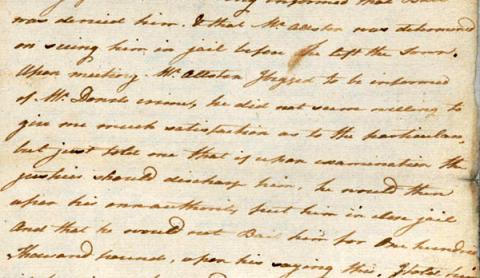 informed that Bail
was denied him. & that Mr. Allston was determined
on seeing him in jail before he left the Town.
Upon meeting Mr. Allston I begged to be informed
of Mr. Donds crime, he did not seem willing to
give me much satisfaction as to the particulars,
but just told me that if upon examination the
justices should discharge him, he would then
upon his own authority put him in close jail
And that he would not Bail him for One hundred
thousand pounds, upon his saying this, I told him